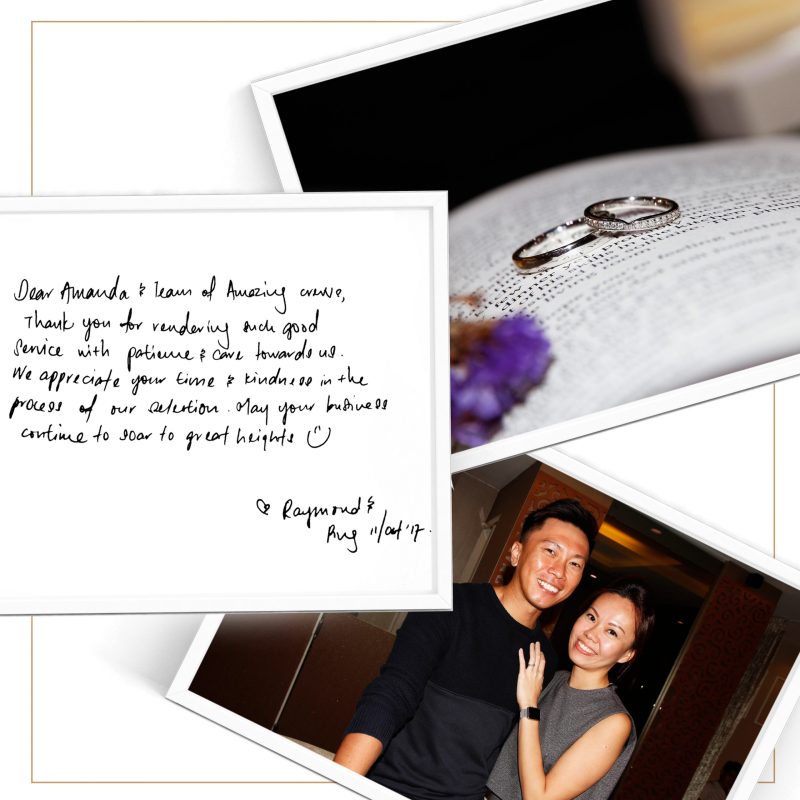 Dear Amanda & Team of Amazing crews,
Thank you for rendering such good
service with patience & care towards us.
We appreciate your time & kindness in the
process of our selection. May your business
continue to soar to great heights
Raymond &
11/Oct '17.